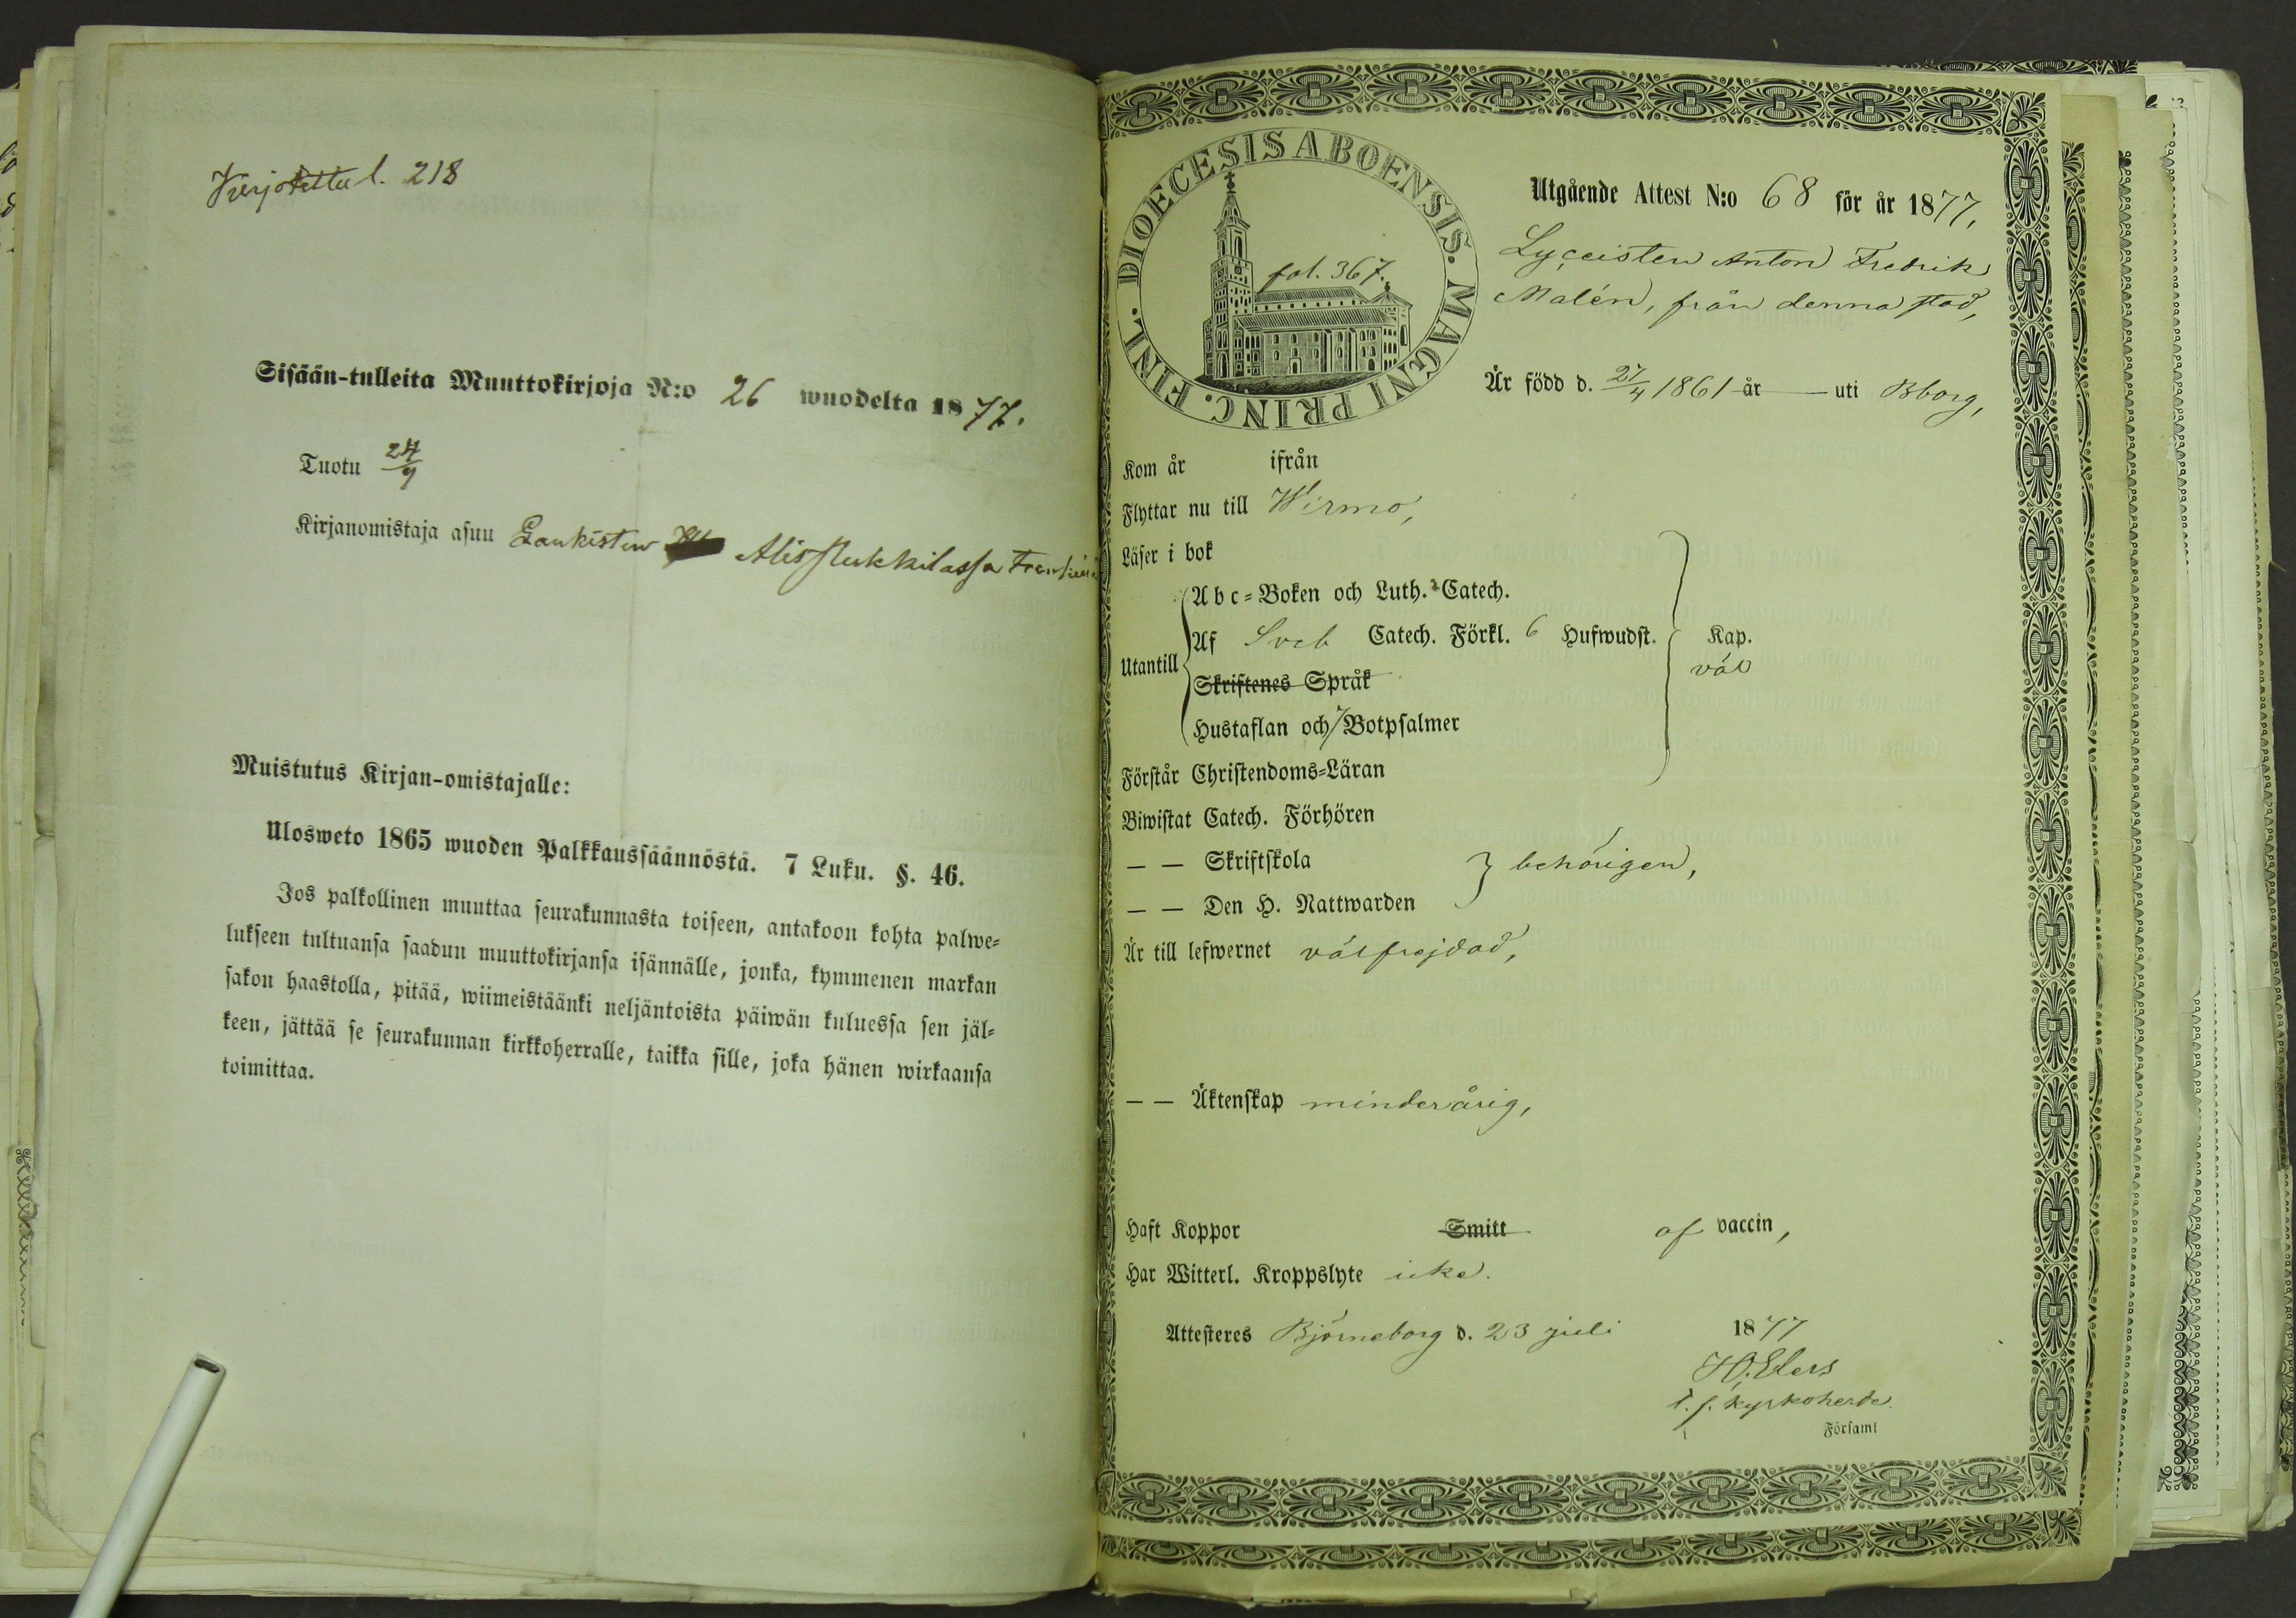 Kirjotettu l. 218
Sisään-tulleita Muuttokirjoja N:o 26 wuodelta 1877.
Tuotu 24/9
Kirjanomistaja asuu Laukisten Alis
Muistutus Kirjan-omistajalle:
Ulosweto 1865 wuoden Palkkaussäännöstä. 7 Luku. §. 46.
Jos palkollinen muuttaa seurakunnasta toiseen, antakoon kohta palwe=
lukseen tultuansa saadun muuttokirjansa isännälle, jonka, kymmenen markan
sakon haastolla, pitää, wiimeistäänki neljäntoista päiwän kuluessa sen jäl=
keen, jättää se seurakunnan kirkkoherralle, taikka sille, joka hänen wirkaansa
toimittaa.
DIOECESIS ABOENSIS. MAGNI PRINC. FINL.
fol. 367.
Utgående Attest N:o 68 för år 1877,
Lyceisten Anton Fredrik
Malén, från denna stad,
Är född d. 27/4 1861 år — uti Bborg,
Kom år ifrån
Flyttar nu till Wirmo,
Läser i bok
Utantill
Abc=Boken och Luth. Catech.
Af Sveb Catech. Förkl. 6 Hufwudst. Kap.
Skriftenes Språk
väl
Hustaflan och 7 Botpsalmer
Förstår Christendoms=Läran
Biwistat Catech. Förhören
— — Skriftskola
behörigen,
— — Den H. Nattwarden
Är till lefwernet välfrejdad,
— — Äktenskap minderårig,
Haft Koppor Smitt af vaccin,
Har Witterl. Kroppslyte icke.
Attesteres Björneborg d. 23 juli 1877
H. Elers
t. f. kyrkoherde.
Församl